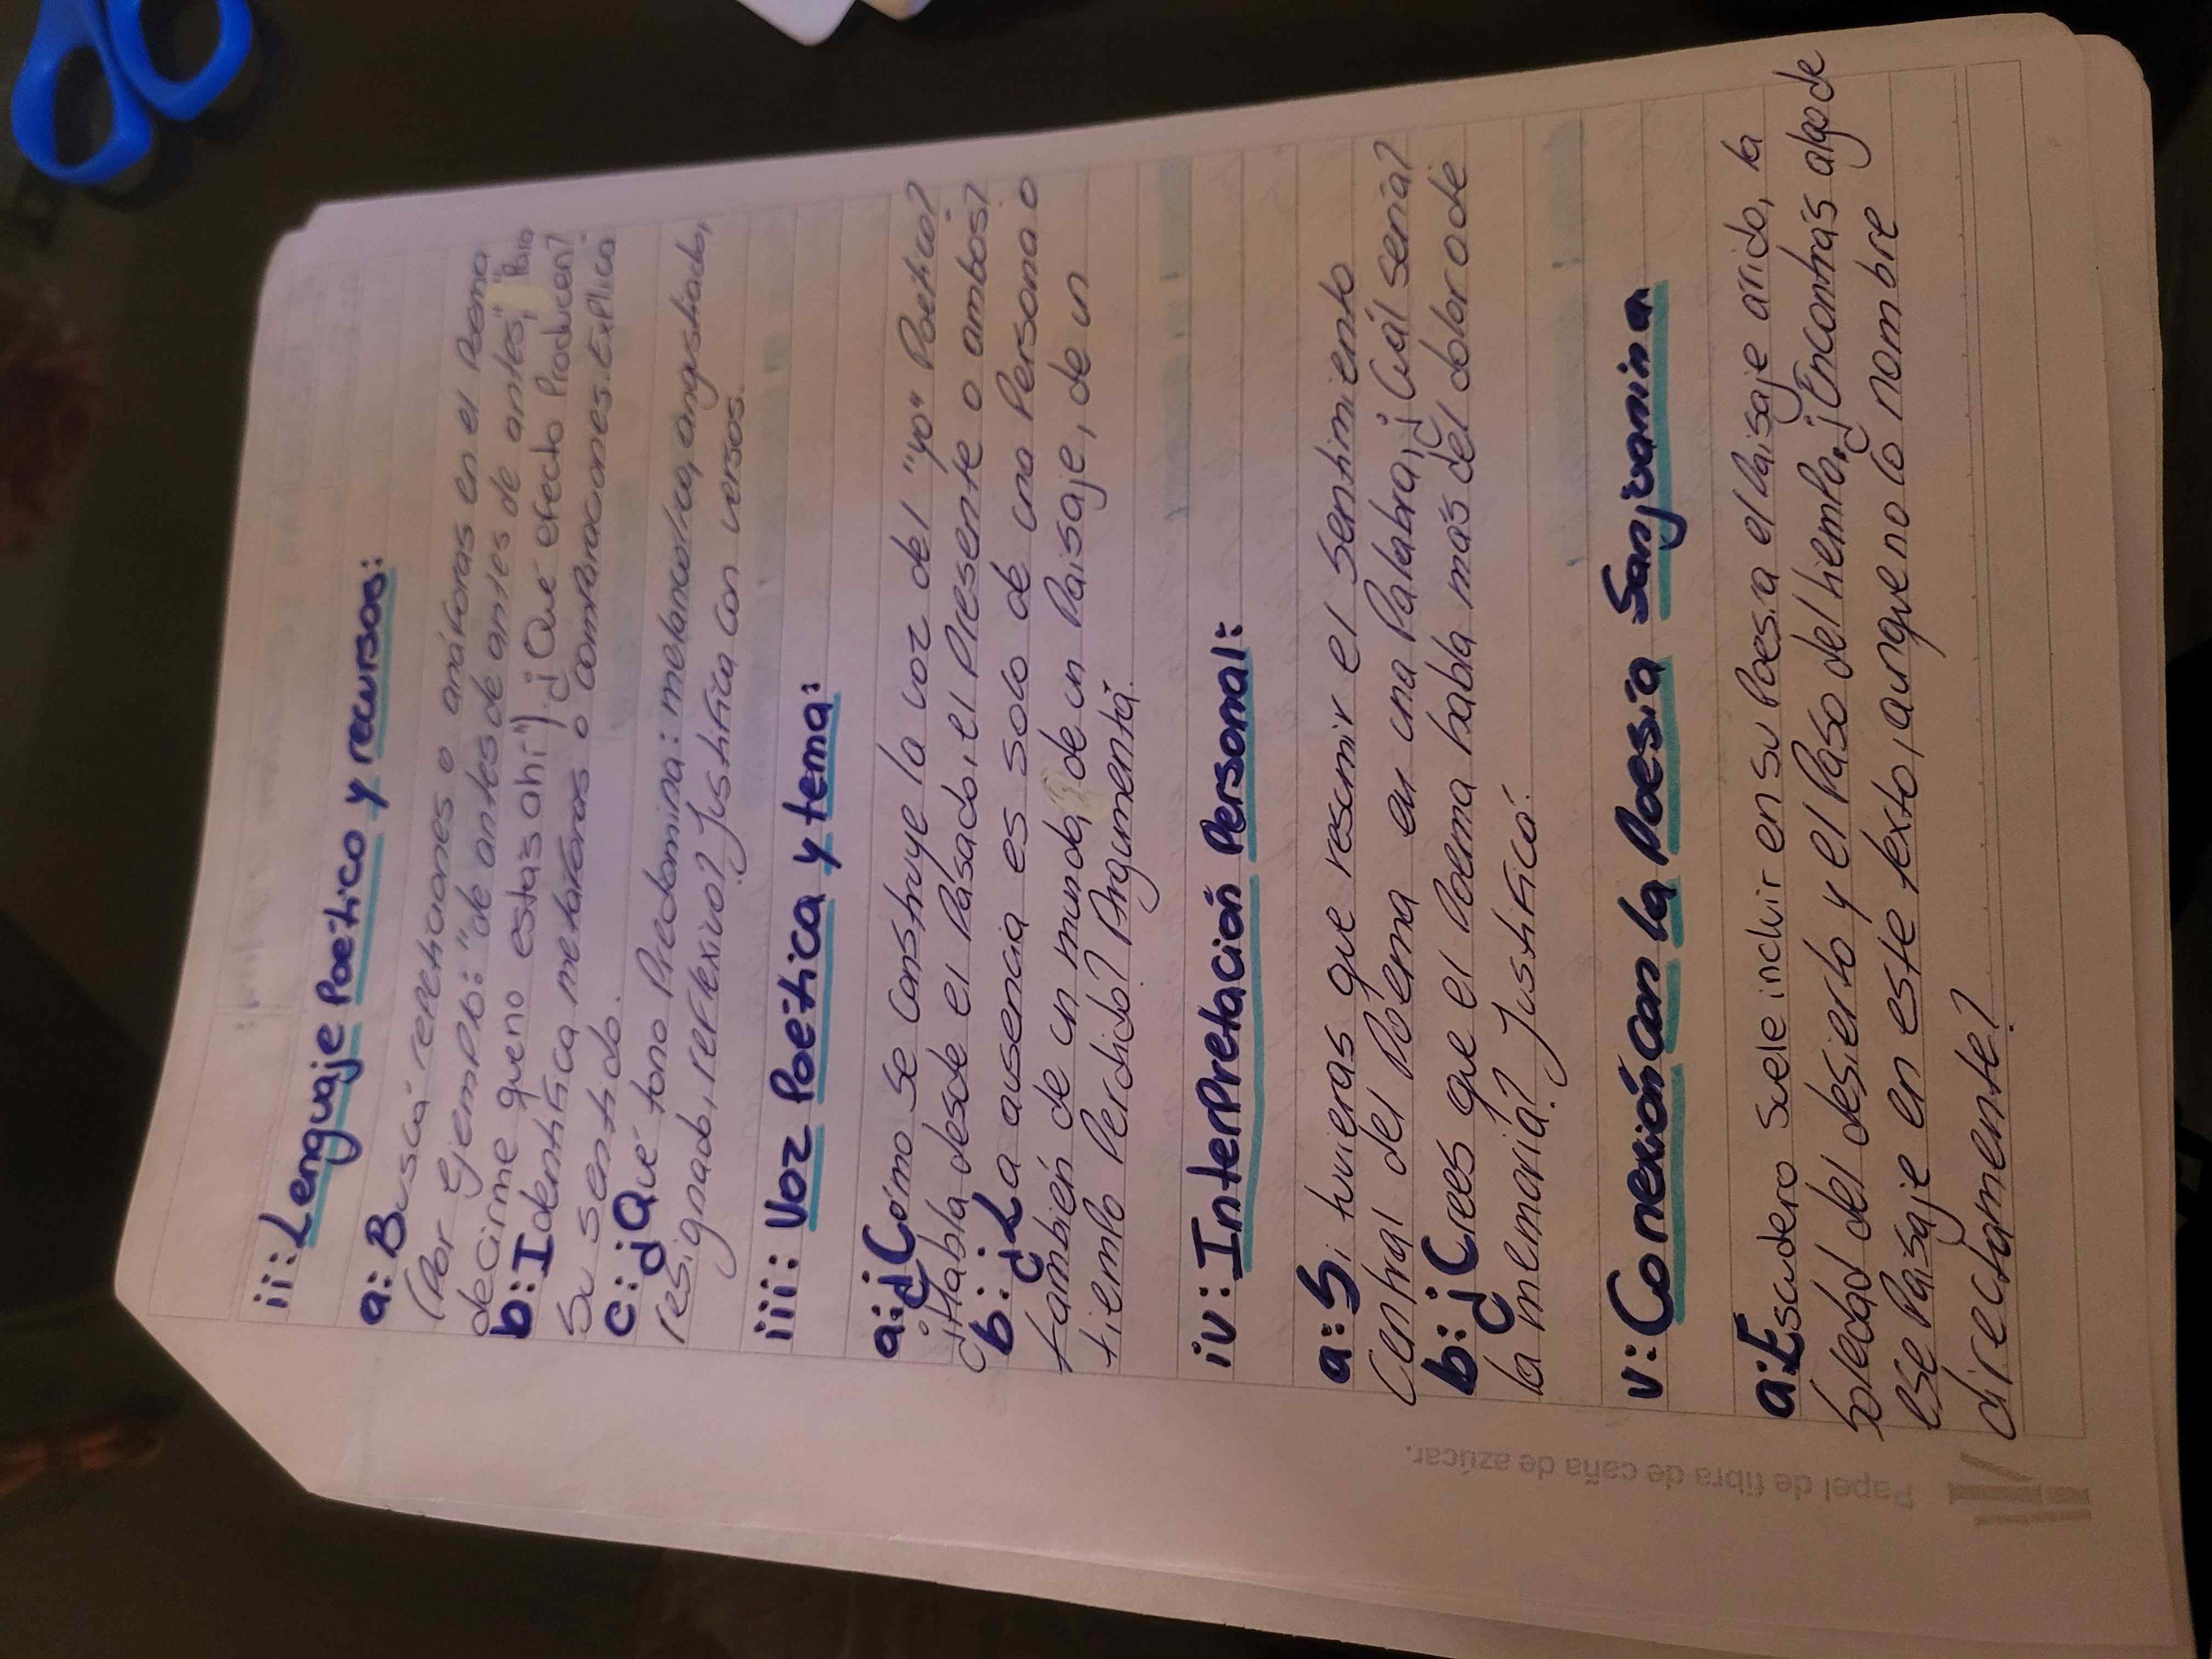 ii: Lenguaje Poético y recursos:
a: Buscá repeticiones o anáforas en el Poema
(Por ejemplo: "de antes de antes de antes," "Para
decirme que no estas ahi") ¿Qué efecto Producen?
b: Identifica metáforas o comparaciones. Explica
su sentido.
c: ¿Qué tono Predomina: melancolico, angustiado,
resignado, reflexivo? Justifica con versos.
iii: Voz Poética y tema:
a: ¿Cómo se construye la voz del "yo" Poetico?
¿Habla desde el Pasado, el Presente o ambos?
b: ¿La ausencia es solo de una Persona o
también de un mundo, de un Paisaje, de un
tiempo Perdido? Argumentá.
iv: InterPretación Personal:
a: Si tuvieras que resumir el Sentimiento
Central del Poema en una Palabra, ¿Cuál sería?
b: ¿Crees que el Poema habla más del dolor o de
la memoria? Justificá.
v: Conexión con la Poesía Sanjuanina
a: Escudero suele incluir en su Poesia el Paisaje arrido, la
Soledad del desierto y el Paso del tiempo, ¿Encontrás algo de
ese Paisaje en este texto, aunque no lo nombre
directamente?
Papel de fibra de caña de azúcar.